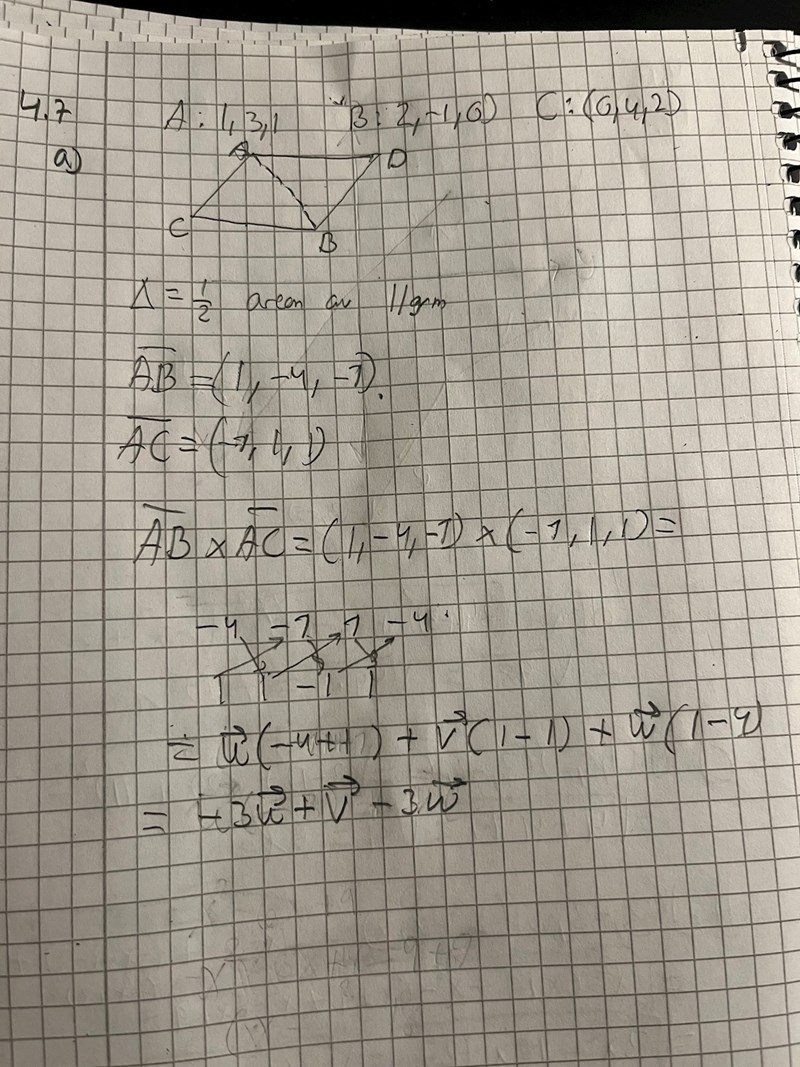 4.7 A: 1,3,1 B: 2,-1,0) C: (0,4,2)
a)
A D
C B
Δ = 1/2 arean av ||grm
AB = (1, -4, -1).
AC = (-1, 1, 1)
AB × AC = (1, -4, -1) × (-1, 1, 1) =
-4 -1 1 -4
1 1 -1 1
= u⃗(-4++1) + v⃗(1-1) + w⃗(1-4)
= -3u⃗ + v⃗ - 3w⃗